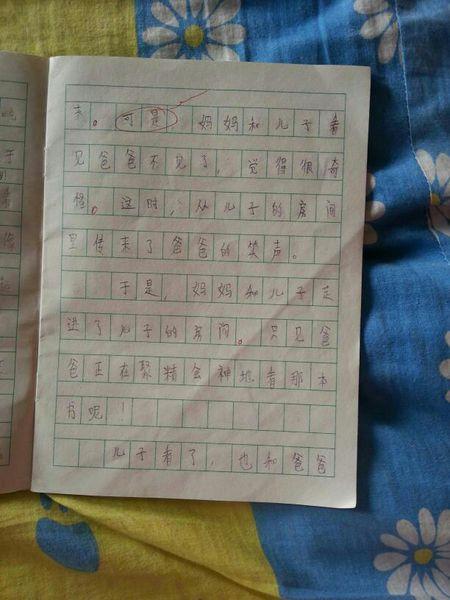 来。可是，妈妈和儿子看
见爸爸不见了，觉得很奇
怪。这时，从儿子的房间
里传来了爸爸的笑声。
于是，妈妈和儿子走
进了儿子的房间。只见爸
爸正在聚精会神地看那本
书呢！
儿子看了，也和爸爸